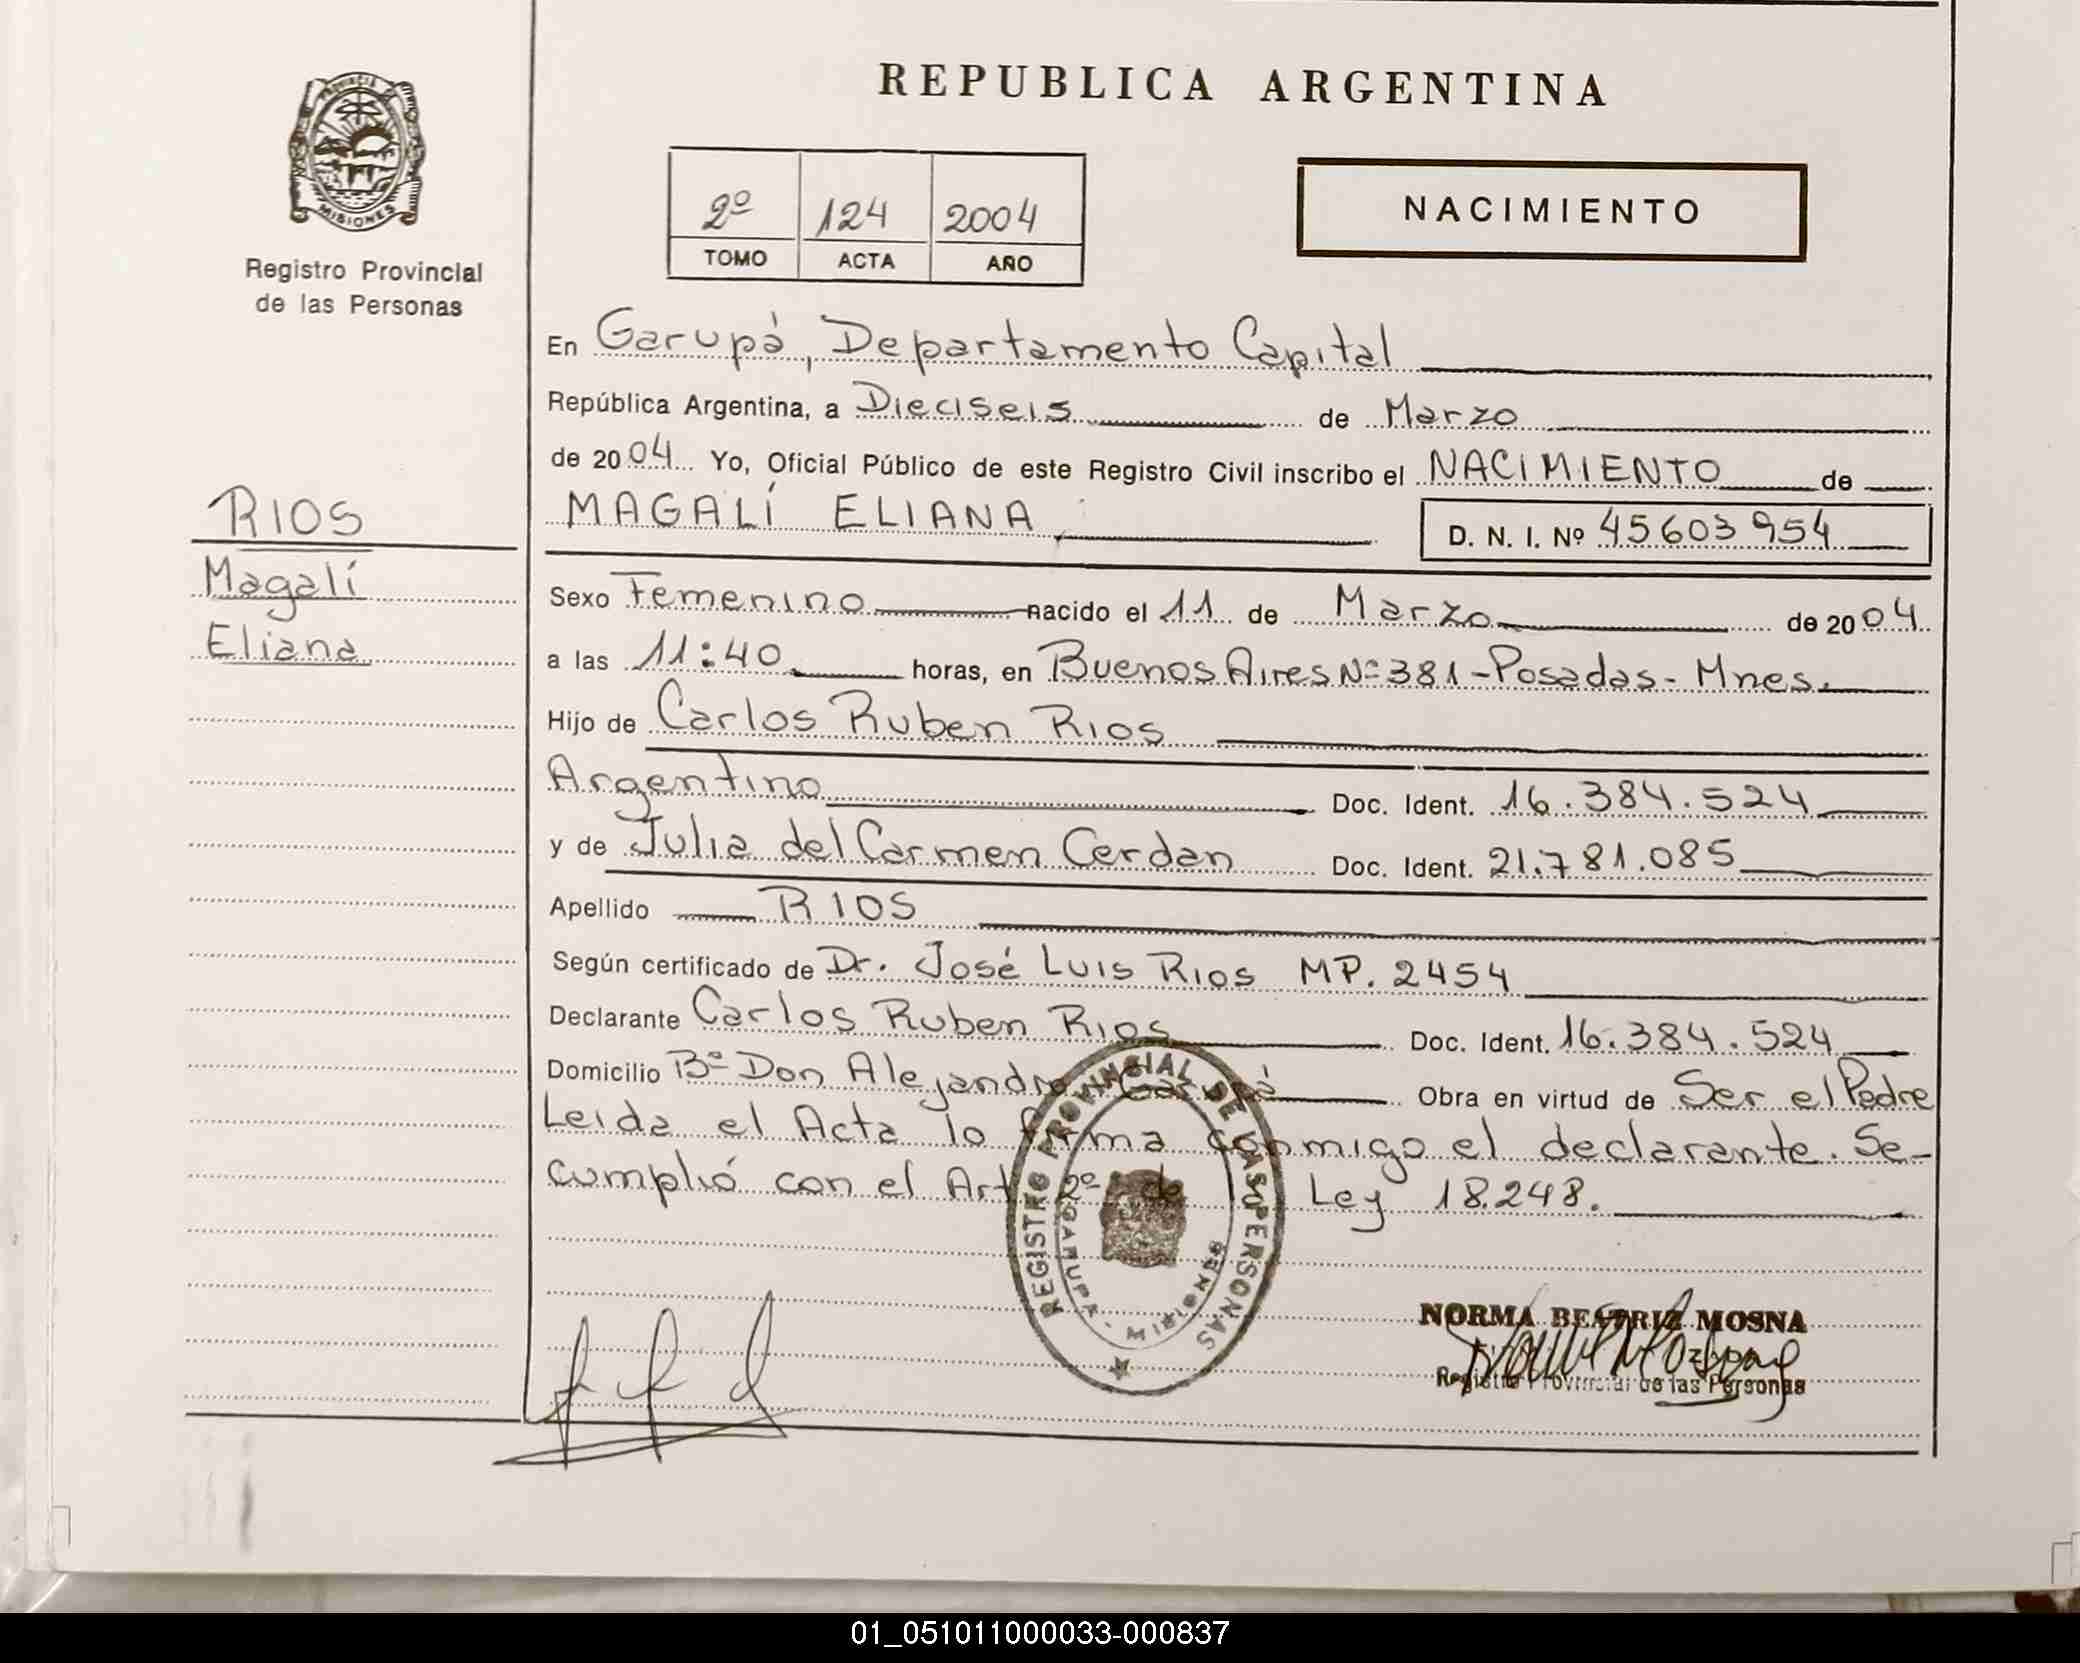 REPUBLICA ARGENTINA
PROVINCIA
MISIONES
Registro Provincial
de las Personas
2º 124 2004
TOMO ACTA AÑO
NACIMIENTO
En Garupá, Departamento Capital
República Argentina, a Dieciseis de Marzo
de 2004 Yo, Oficial Público de este Registro Civil inscribo el NACIMIENTO de
RIOS
MAGALÍ ELIANA D. N. I. Nº 45603954
Magalí
Eliana
Sexo Femenino nacido el 11 de Marzo de 2004
a las 11:40 horas, en Buenos Aires Nº 381 - Posadas - Mnes.
Hijo de Carlos Ruben Rios
Argentino Doc. Ident. 16.384.524
y de Julia del Carmen Cerdan Doc. Ident. 21.781.085
Apellido RIOS
Según certificado de Dr. José Luis Rios MP. 2454
Declarante Carlos Ruben Rios Doc. Ident. 16.384.524
Domicilio Bº Don Alejandro - Garupá Obra en virtud de Ser el Padre
Leida el Acta lo firma conmigo el declarante. Se-
cumplió con el Art 2º de Ley 18.248.
REGISTRO PROVINCIAL DE LAS PERSONAS
GARUPA - MISIONES
NORMA BEATRIZ MOSNA
Registro Provincial de las Personas
01_051011000033-000837